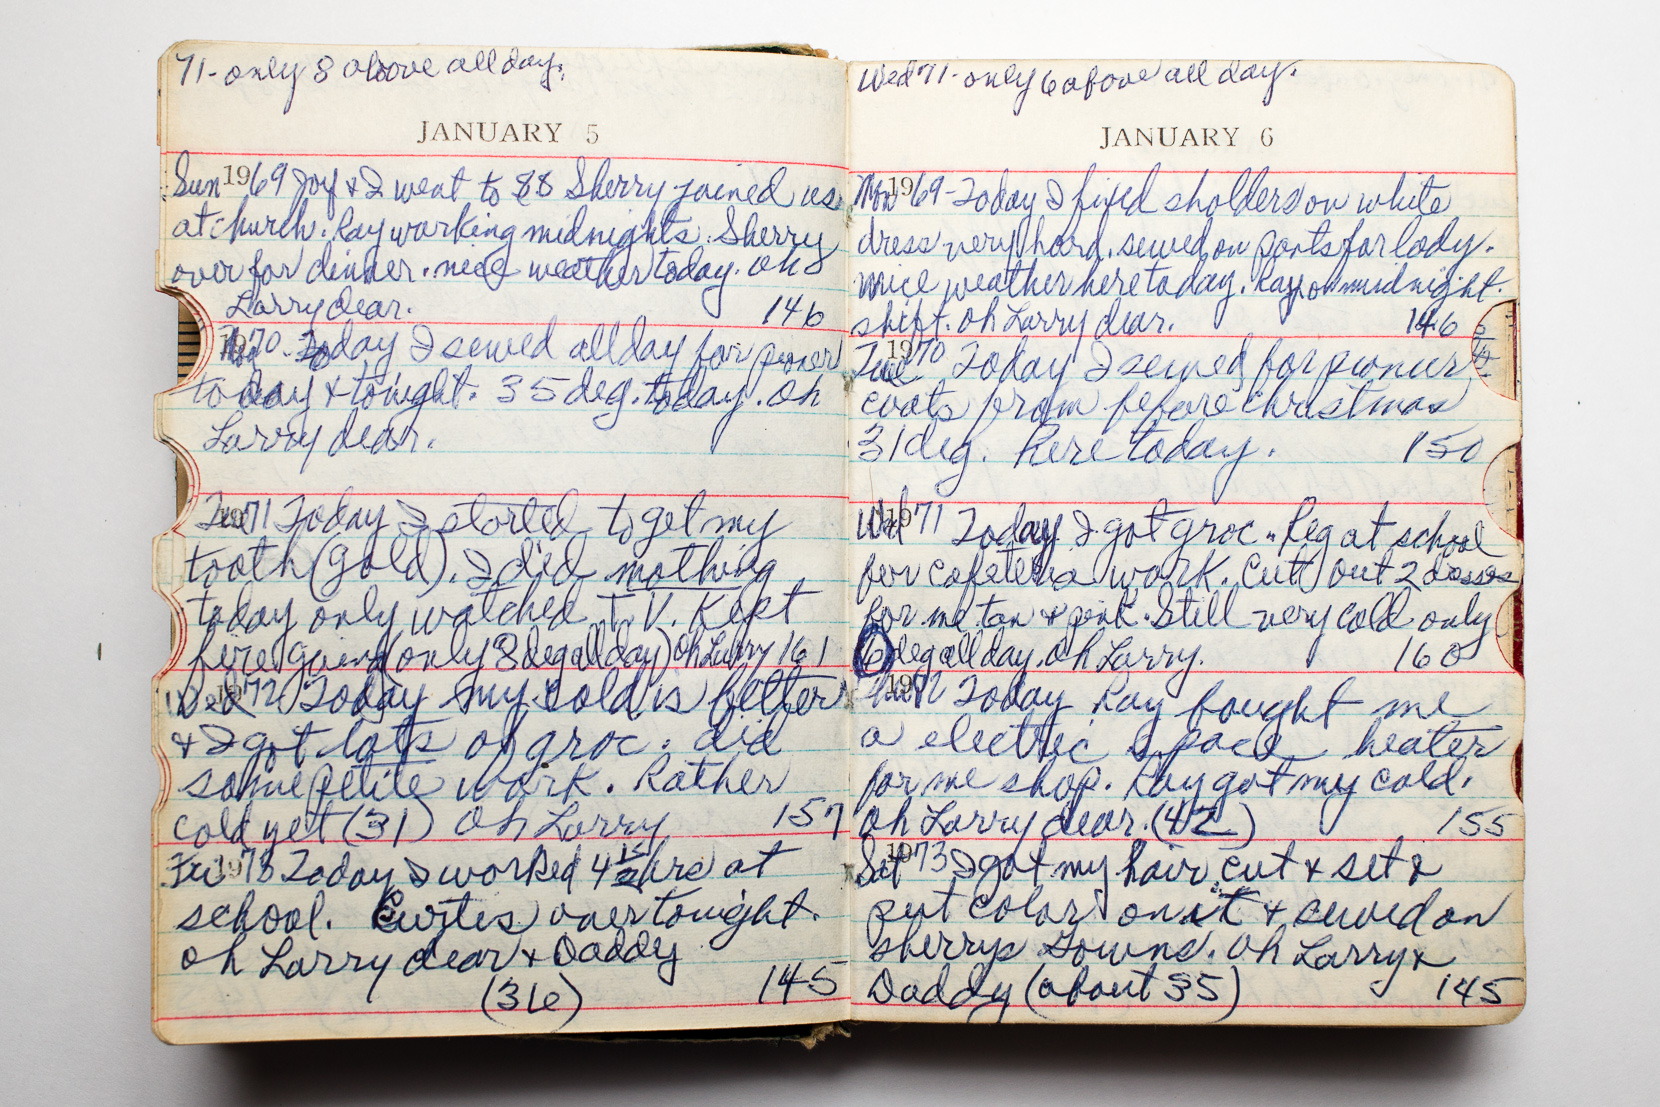 71- only 8 above all day.
JANUARY 5
Sun 1969 Joy & I went to SS Sherry joined us
at church. Ray working midnights. Sherry
over for dinner. nice weather today. oh
Larry dear. 146
1970 Today I sewed all day for
today & tonight. 35 deg. today. oh
Larry dear.
Tue 1971 Today I started to get my
tooth (gold). I did nothing
today only watched T.V. Kept
fire going (only 8 deg all day) oh Larry 161
Wed 1972 Today my cold is better
& I got lots of groc. did
some petite work. Rather
cold yet (31) oh Larry 157
Fri 1973 Today I worked 4 1/2 hrs at
school. Curtis over tonight.
oh Larry dear & Daddy
(36) 145
Wed 71- only 6 above all day.
JANUARY 6
Mon 1969- Today I fixed sholders on white
dress very hard. sewed on pants for lady.
nice weather here today. Ray on midnight
shift. oh Larry dear. 146
Tue 1970 Today I sewed for pioneer
coats from before christmas
31 deg. here today. 150
Wed 1971 Today I got groc. Reg at school
for cafeteria work. Cutt out 2 dresses
for me tan & pink. Still very cold only
6 deg all day. oh Larry. 160
1972 Today Ray bought me
a electric space heater
for me shop. Ray got my cold.
oh Larry dear. (42) 155
Sat 1973 I got my hair cut & set &
put color on it & sewed on
sherrys gowns. oh Larry &
Daddy (about 35) 145